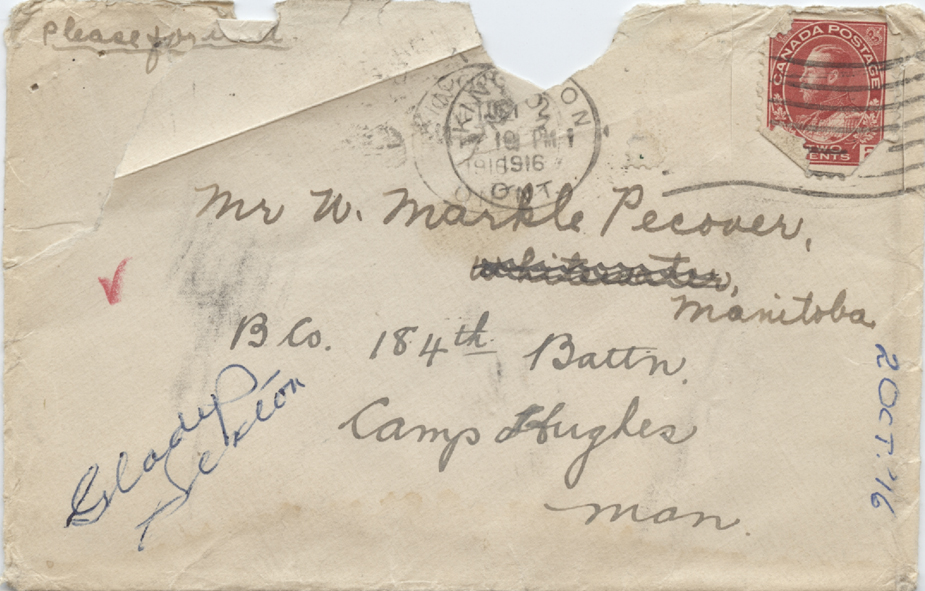 Please forward
CANADA POSTAGE
TWO
CENTS
PM
1916
ONT.
Mr W. Markle Pecover,
Whitewater,
Manitoba
B Co. 184th Battn.
Camp Hughes
Man.
Gladys
20 OCT. '16